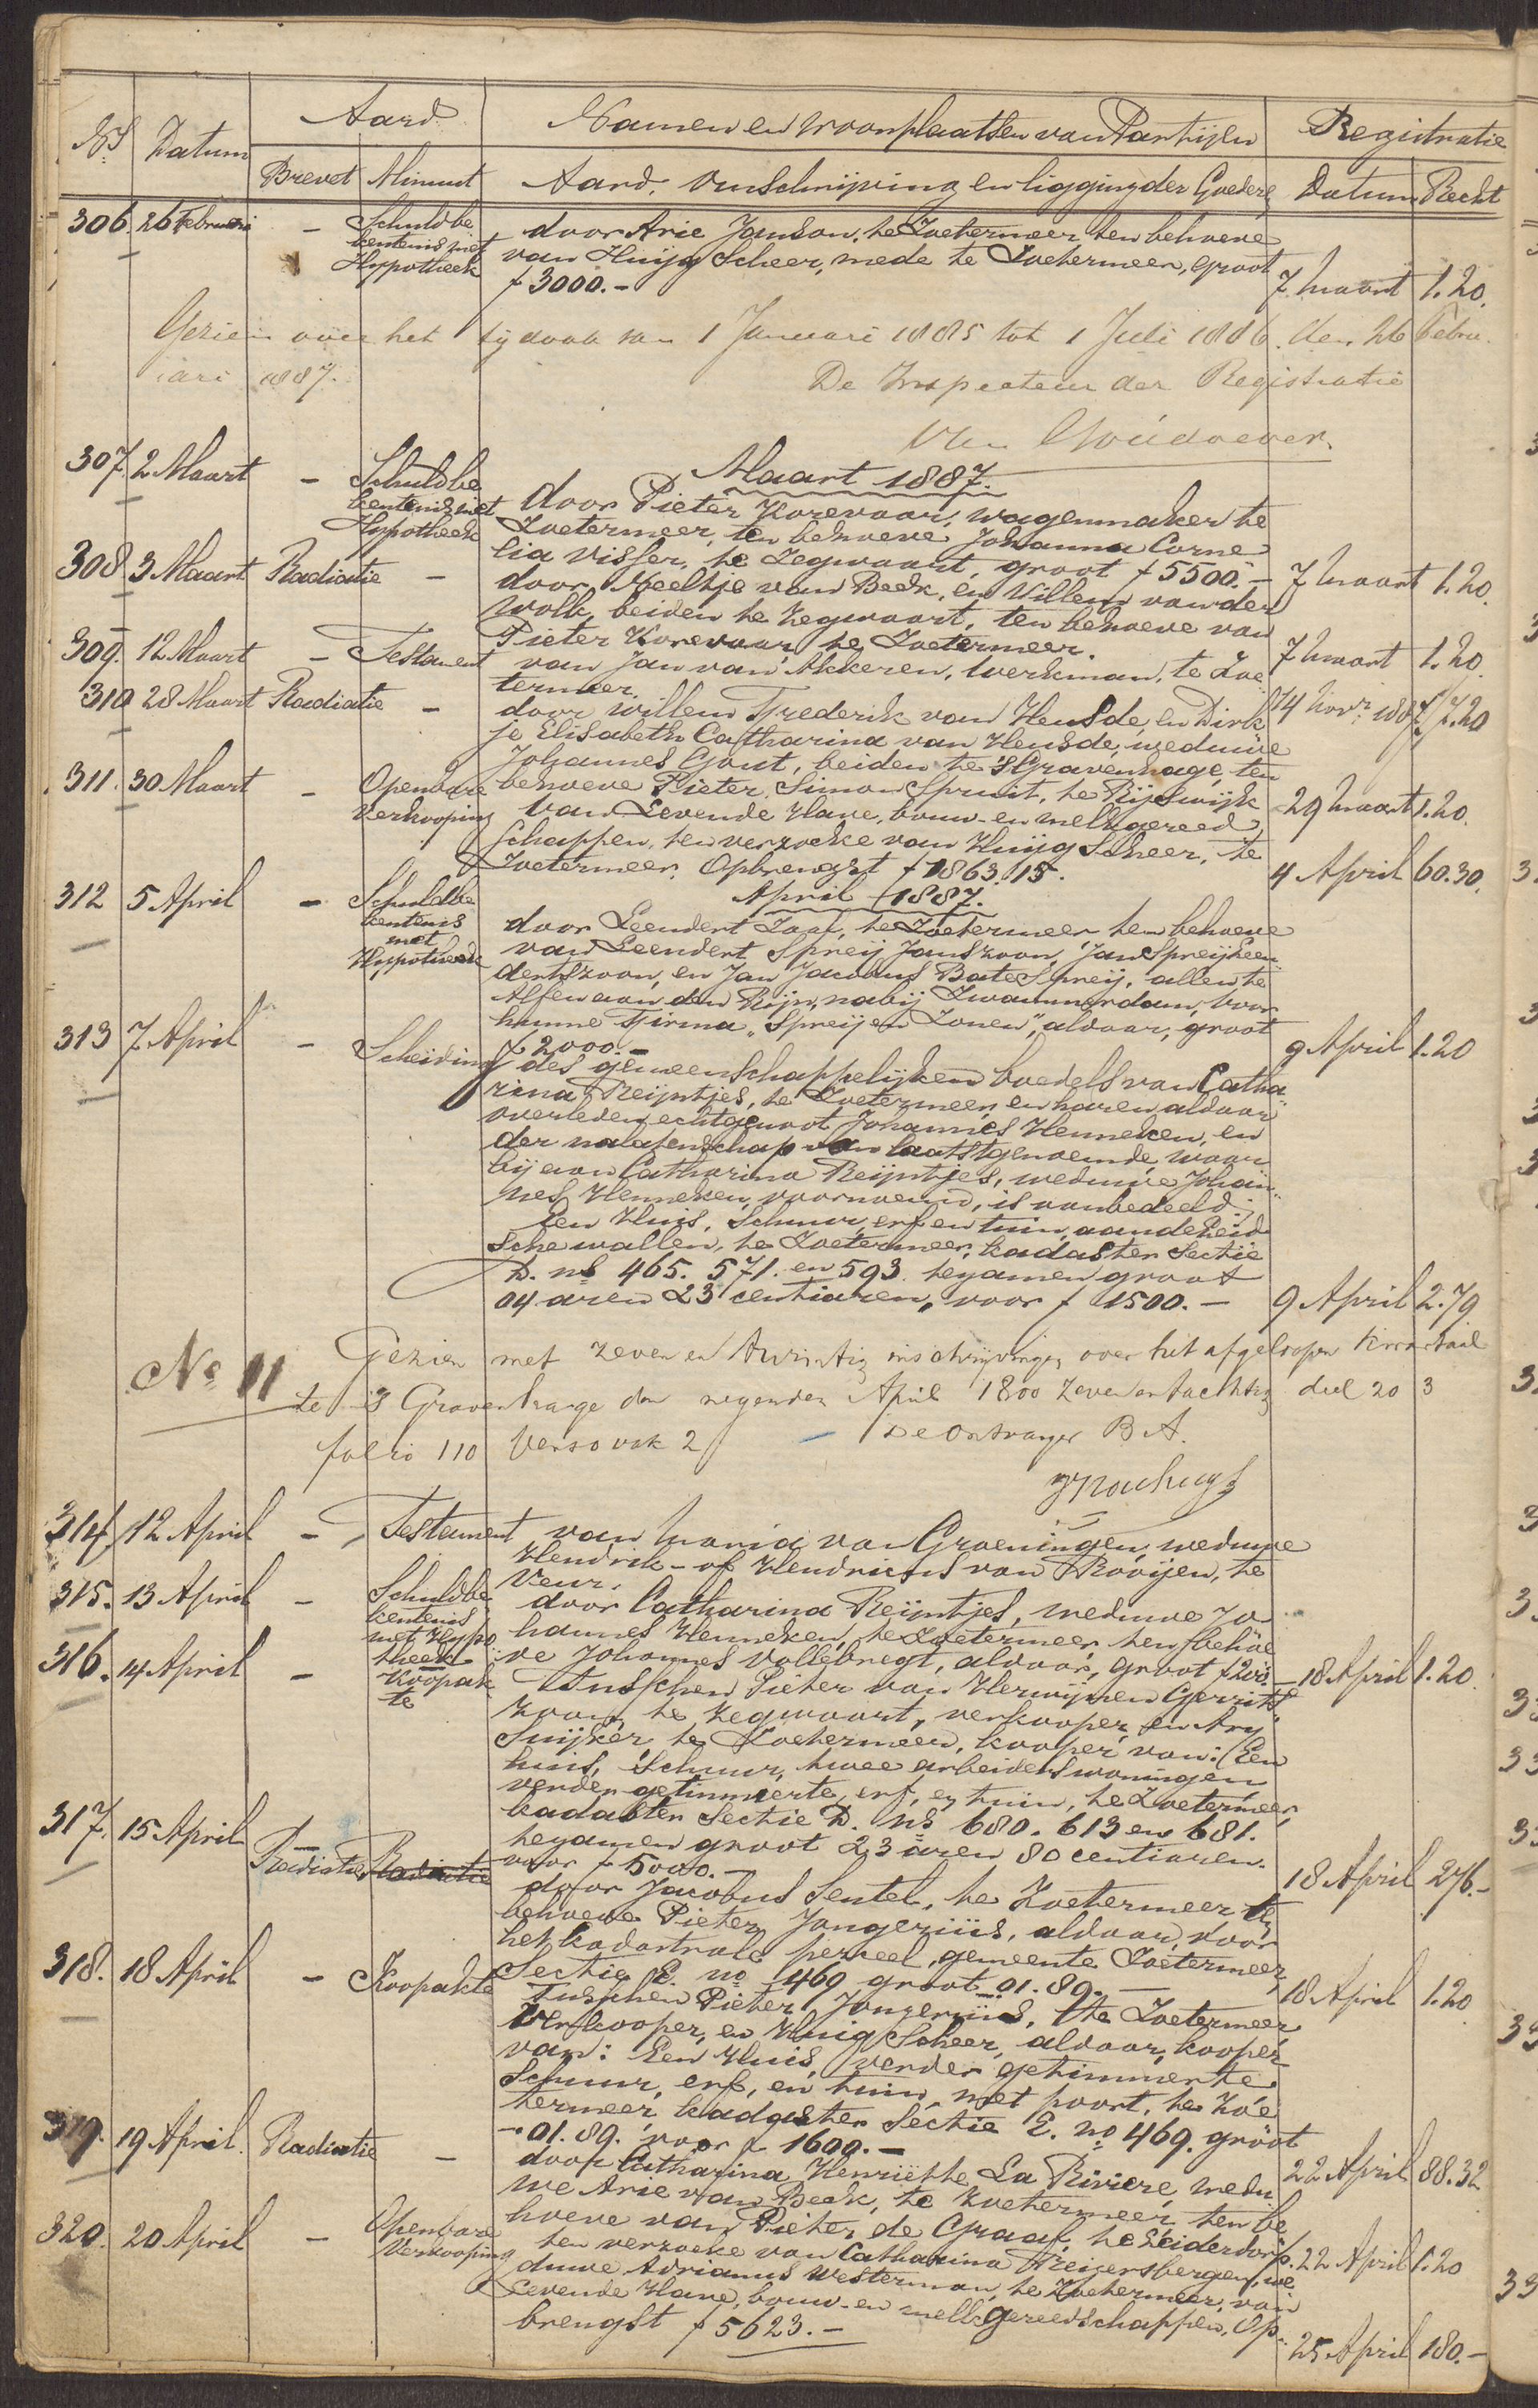 No Datum Aard Namen en Woonplaatsen van Partijen Registratie
Brevet Minuut Aard, Omschrijving en ligging der Goederen Datum Recht
306. 26 Februari - Schuldbe door Arie Janson, te Zoetermeer, ten behoeve
kentenis met van Huijg Scheer, mede te Zoetermeer, groot
Hypotheek f 3000.- 7 Maart 1.20.
Gezien over het tijdvak van 1 Januari 1885 tot 1 Juli 1886. den 26 Febru-
ari 1887. De Inspecteur der Registratie
Maart 1887.
307. 2 Maart - Schuldbe door Pieter Korevaar, wagenmaker te
kentenis met Zoetermeer, ten behoeve Johanna Corne
Hypotheek lia Visser, te Zegwaart, groot f 5500.- 7 Maart 1.20.
308 3 Maart Radiatie - door Neeltje van Beek, en Willem van der
Wolk, beiden te Zegwaart, ten behoeve van
Pieter Korevaar, te Zoetermeer. 7 Maart 1.20.
309. 12 Maart - Testament van Jan van Akkeren, werkman, te Zoe
termeer. 14 Novr 1887 7.20
310 28 Maart Radiatie - door Willem Frederik van Heusde, en Dirk
je Elisabeth Catharina van Heusde, weduwe
Johannes Gout, beiden te 'sGravenhage, ten
behoeve Pieter Simon Spruit, te Rijswijk 29 Maart 1.20.
311. 30 Maart - Openbare Verkooping van Levende Have, bouw- en melkgereed
schappen, ten verzoeke van Huijg Scheer, te
Zoetermeer. Opbrengst f 1863.15. 4 April 60.30.
April 1887.
312 5 April - Schuldbe door Leendert Zaal, te Zoetermeer ten behoeve
kentenis van Leendert Spreij Janszoon, Jan Spreij Leen
met dertszoon, en Jan Jacobus Bate Spreij, allen te
Hypotheek Alfen aan den Rijn, nabij Zwammerdam, voor
hunne Firma "Spreij en Zonen", aldaar, groot
f 2000.- 9 April 1.20
313 7 April - Scheiding des gemeenschappelijken boedels van Catha
rina Reijntjes, te Zoetermeer, en haren aldaar
overleden echtgenoot Johannes Henneken, en
der nalatenschap van laatstgenoemde, waar
bij aan Catharina Reijntjes, weduwe Johan
nes Henneken, voornoemd, is aanbedeeld:
Een Huis, Schuur, erf en tuin, aan de Leid
sche wallen, te Zoetermeer, kadaster Sectie
D. ns 465. 571. en 593. tezamen groot
04 aren 23 centiaren, voor f 1500.- 9 April 2.79
No 11 Gezien met zeven en twintig inschrijvingen over het afgeloopen kwartaal
te 's Gravenhage den negenden April 1800 zeven en tachtig deel 20 3
folio 110 Verso vak 2 De Ontvanger B A.
314 12 April - Testament van Maria van Groeningen, weduwe
Hendrik- of Hendricus van Rooijen, te
Veur.
315. 13 April - Schuldbe door Catharina Reijntjes, weduwe Jo
kentenis hannes Henneken, te Zoetermeer, ten behoe
met Hypo theek ve Johannes Vollebregt, aldaar, groot f 200.- 18 April 1.20.
316. 14 April - Koopak te Tusschen Pieter van Herwijnen Gerrits
zoon, te Zegwaart, verkooper, en Arij
Suijker, te Zoetermeer, kooper van: Een
huis, Schuur, twee arbeiderswoningen
verder getimmerte, erf, en tuin, te Zoetermeer,
kadaster Sectie D. ns 680. 613 en 681.
tezamen groot 23 aren 80 centiaren.
voor f 5000.- 18 April 276.-
317. 15 April Radiatie Radiatie door Jacobus Sentel, te Zoetermeer ten
behoeve Pieter Jongeriüs, aldaar, voor
het kadastrale perceel, gemeente Zoetermeer
Sectie E. no 469 groot 01.89.- 18 April 1.20
318. 18 April - Koopakte Tusschen Pieter Jongeriüs, te Zoetermeer
Verkooper, en Huig Scheer, aldaar, kooper
van: Een Huis, verder getimmerte,
Schuur, erf, en tuin, met poort, te Zoe
termeer, kadaster Sectie E. no 469. groot
-.01.89. voor f 1600.- 22 April 88.32
319. 19 April. Radiatie - door Catharina Henriëtte La Riviere, wedu
we Arie van Beek, te Zoetermeer, ten be
hoeve van Pieter de Graaf, te Leiderdorp. 22 April 1.20
320. 20 April - Openbare Verkooping ten verzoeke van Catharina Keizersbergen, we
duwe Adrianus Westerman, te Zoetermeer, van
Levende Have, bouw- en melkgereedschappen, Op-
brengst f 5623.- 25 April 180.-